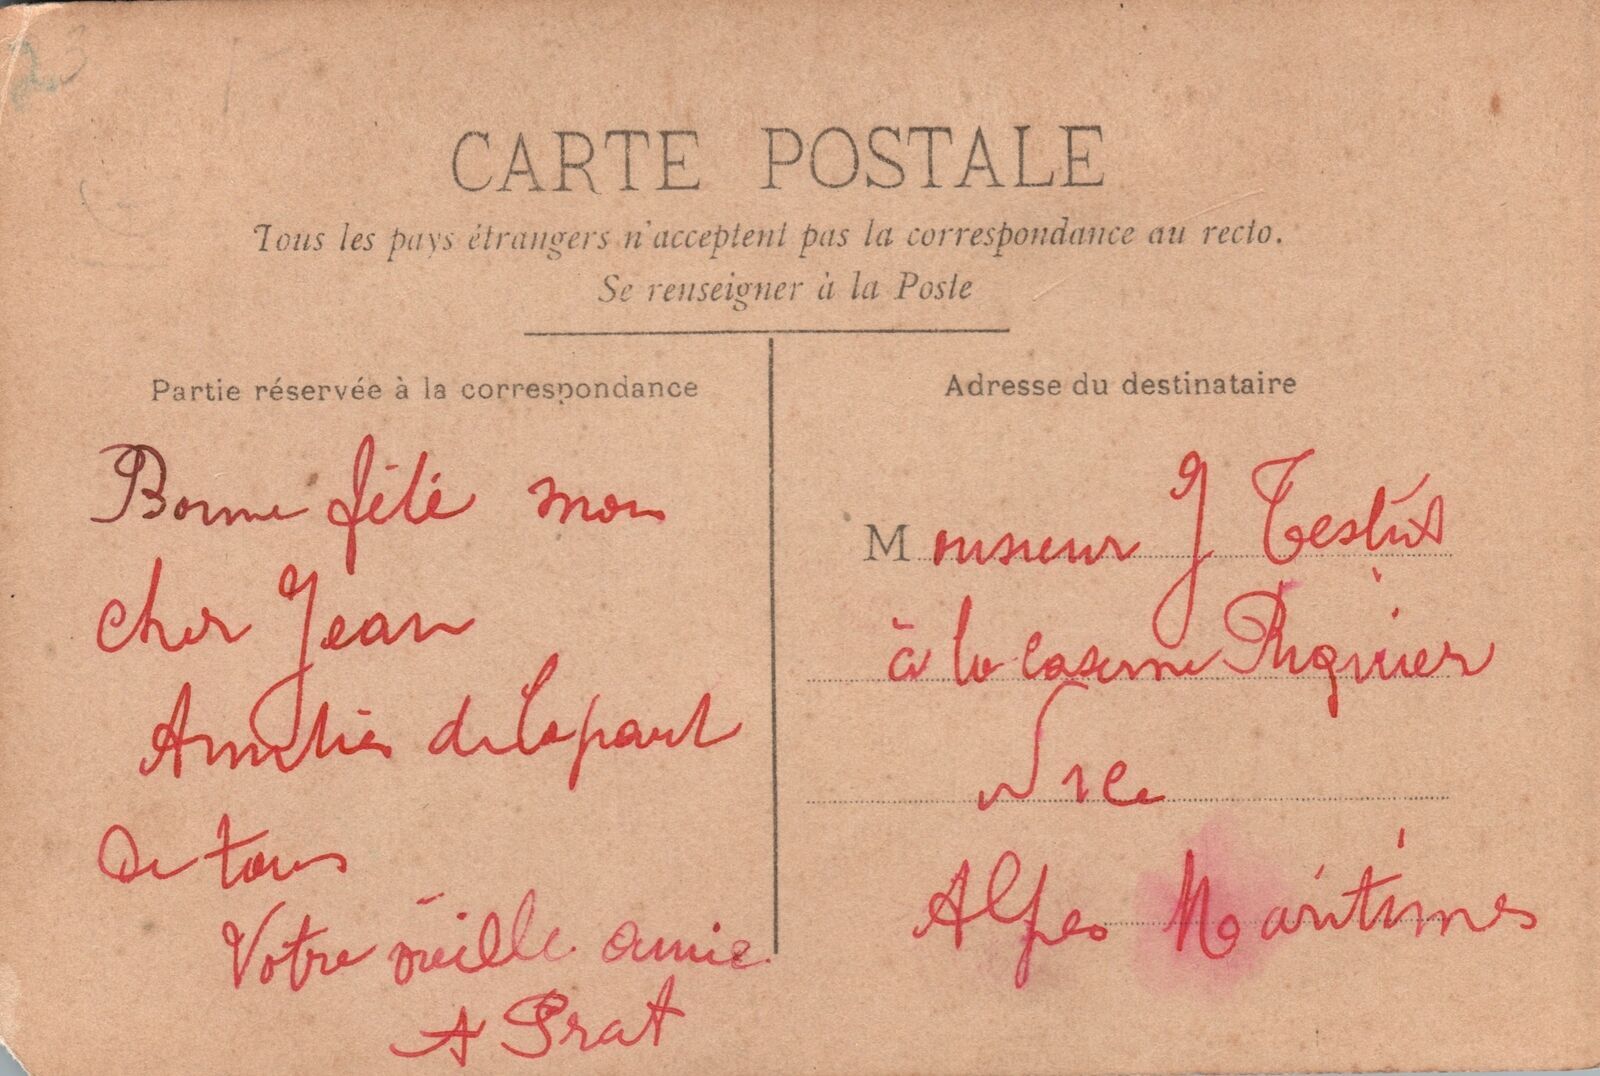 CARTE POSTALE
Tous les pays étrangers n'acceptent pas la correspondance au recto.
Se renseigner à la Poste
Partie réservée à la correspondance
Bonne fête mon
cher Jean
Amitiés de la part
de tous
Votre vieille amie
A Prat
Adresse du destinataire
Monsieur J Testut
à la caserne Riquier
Nice
Alpes Maritimes